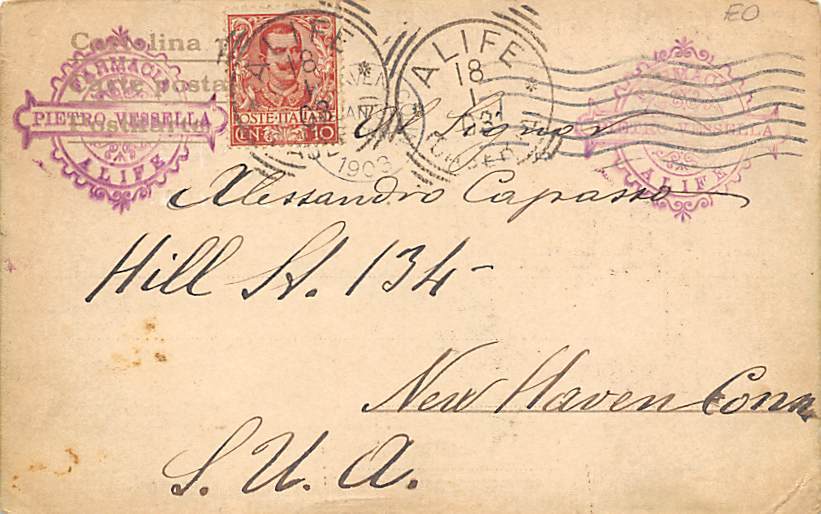 EO
Cartolina
Carte postale
Postkarte
FARMACIA
PIETRO VESSELLA
ALIFE
POSTE ITALIANE
CEN. 10
ALIFE
18
1
03
ALIFE
18
1
03
1903
FARMACIA
PIETRO VESSELLA
ALIFE
Al Signor
Alessandro Capasso
Hill St. 134-
New Haven Conn
S. U. A.